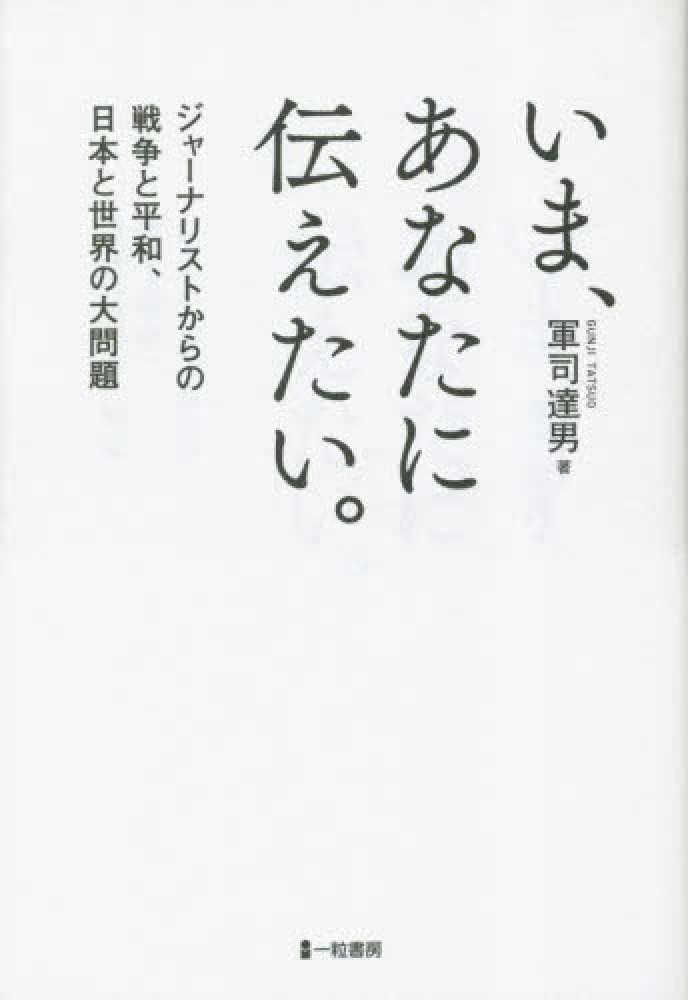 いま、
あなたに
伝えたい。
GUNJI TATSUO
軍司達男 著
ジャーナリストからの
戦争と平和、
日本と世界の大問題
一粒書房